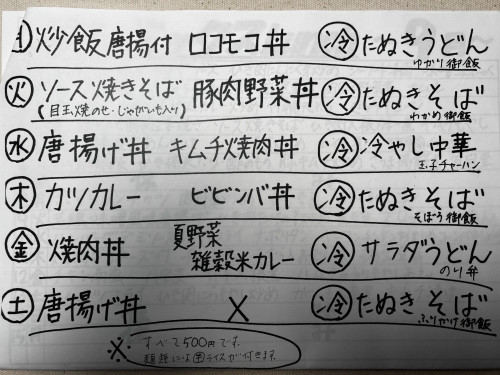 月 炒飯唐揚付 ロコモコ丼 冷 たぬきうどん
ゆかり御飯
火 ソース焼きそば 豚肉野菜丼 冷 たぬきそば
(目玉焼のせ・じゃがいも入り) わかめ御飯
水 唐揚げ丼 キムチ焼肉丼 冷 冷やし中華
玉子チャーハン
木 カツカレー ビビンバ丼 冷 たぬきそば
そぼろ御飯
金 焼肉丼 夏野菜 冷 サラダうどん
雑穀米カレー のり弁
土 唐揚げ丼 × 冷 たぬきそば
ふりかけ御飯
※ すべて500円です。
麺類には ライスが付きます。